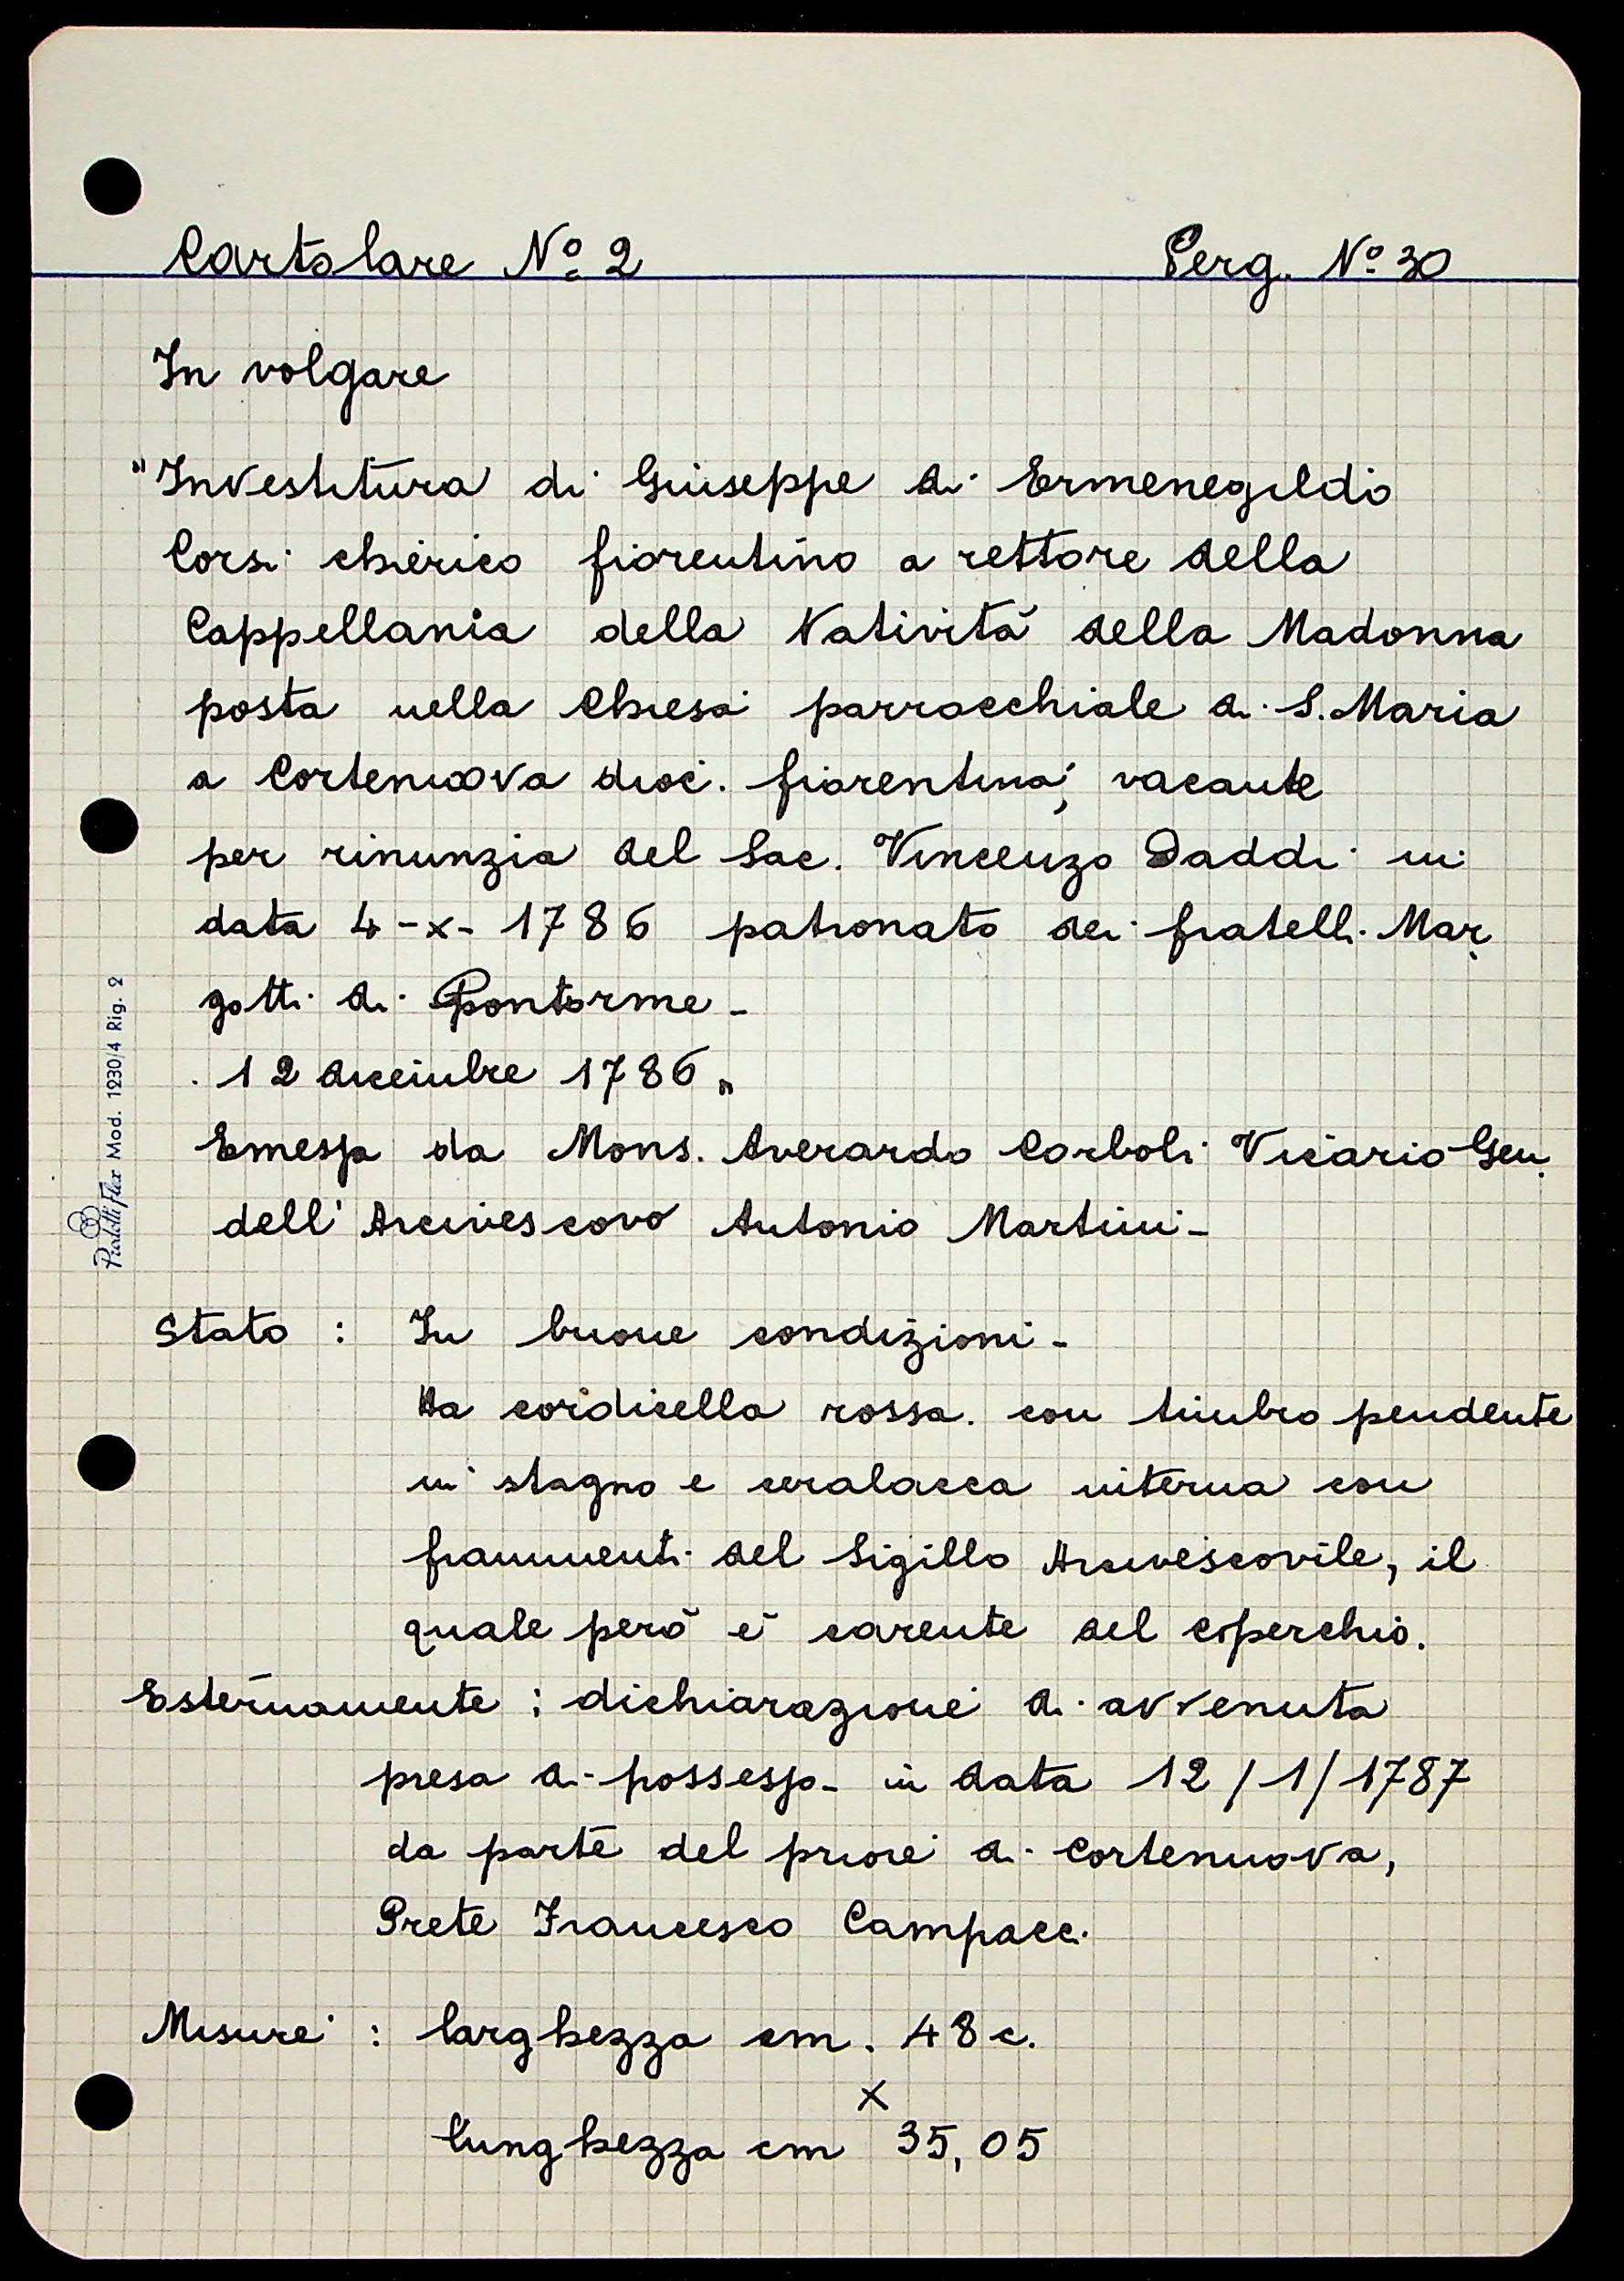 Cartolare Nº 2 Perg. Nº 30
In volgare
"Investitura di Giuseppe di Ermenegildo
Corsi chierico fiorentino a rettore della
Cappellania della Natività della Madonna
posta nella Chiesa parrocchiale di S. Maria
a Cortenuova dioc. fiorentina, vacante
per rinunzia del Sac. Vincenzo Daddi in
data 4-X-1786 patronato dei fratelli Mar
gotti di Pontorme -
12 dicembre 1786"
Emessa da Mons. Averardo Corboli Vicario Gen.
dell'Arcivescovo Antonio Martini -
Stato : In buone condizioni -
Ha cordicella rossa. con timbro pendente
in stagno e ceralacca interna con
frammenti del Sigillo Arcivescovile, il
quale però è carente del coperchio.
Esternamente : dichiarazione di avvenuta
presa di possesso - in data 12/1/1787
da parte del priore di Cortenuova,
Prete Francesco Campacci
Misure : larghezza cm. 48 c.
x
lunghezza cm 35,05
Pratelli flex Mod. 1230/4 Rig. 2